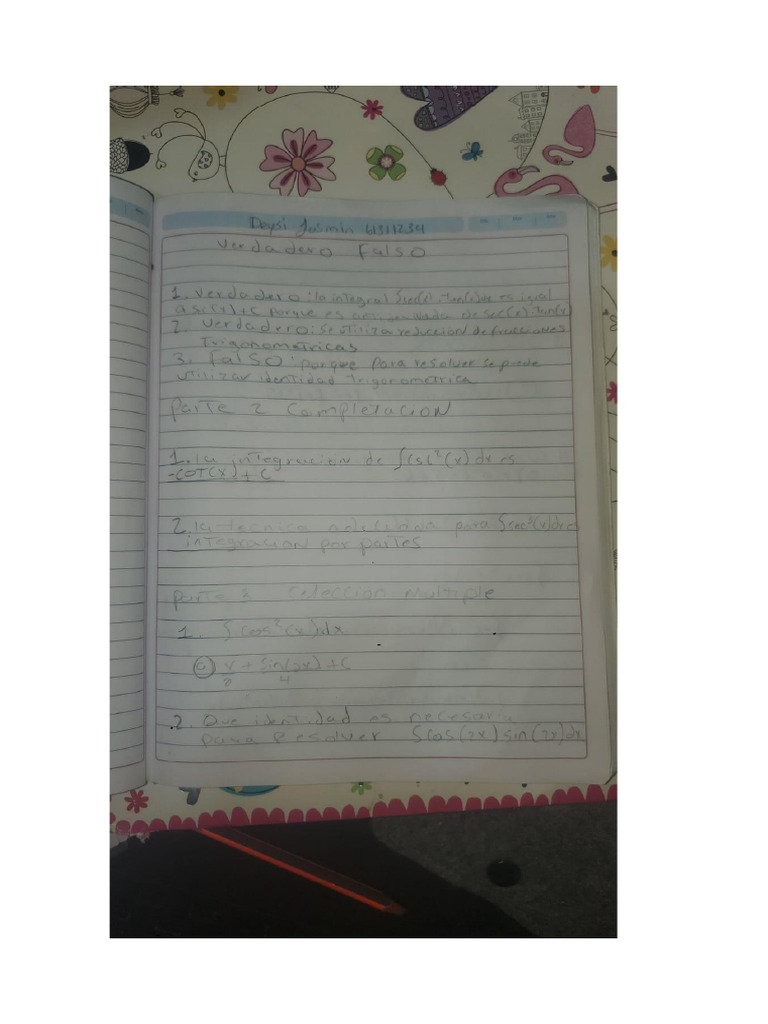 Deysi Jasmin 61311234
Verdadero Falso
1. Verdadero: la integral ∫sec(x).tan(x)dx es igual
a sc(x)+c porque es la de sec(x) tan(x)
2. Verdadero: Se utiliza reducción de fracciones
Trigonometricas
3. Falso: porque para resolver se puede
utilizar identidad trigonometrica
Parte 2 Completacion
1. la integracion de ∫csc²(x) dx es
-COT(x) + c
2. la tecnica adecuada para ∫sec³(x)dx es
integracion por partes
Parte 3 Seleccion Multiple
1. ∫cos²(x)dx
c x/2 + sin(2x)/4 + c
2. Que identidad es necesaria
para Resolver ∫cos(2x) sin(2x)dx